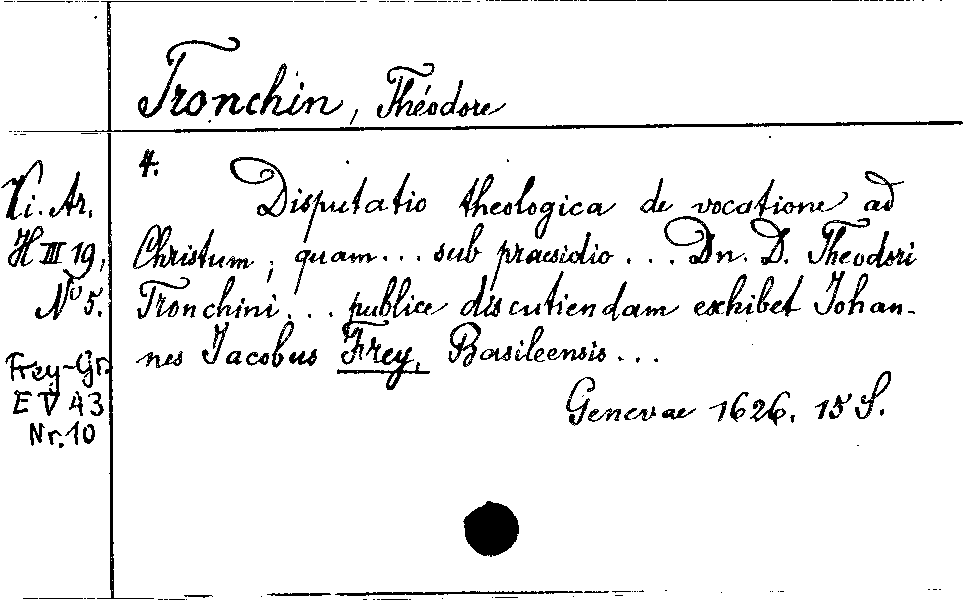 Tronchin, Théodore
4.
Ki. Ar.
H III 19,
No 5.
Frey-Gr.
E V 43
Nr. 10
Disputatio theologica de vocatione ad
Christum, quam... sub praesidio... Dn. D. Theodori
Tronchini... publice discutiendam exhibet Johan-
nes Jacobus Frey, Basileensis...
Genevae 1626. 15 S.